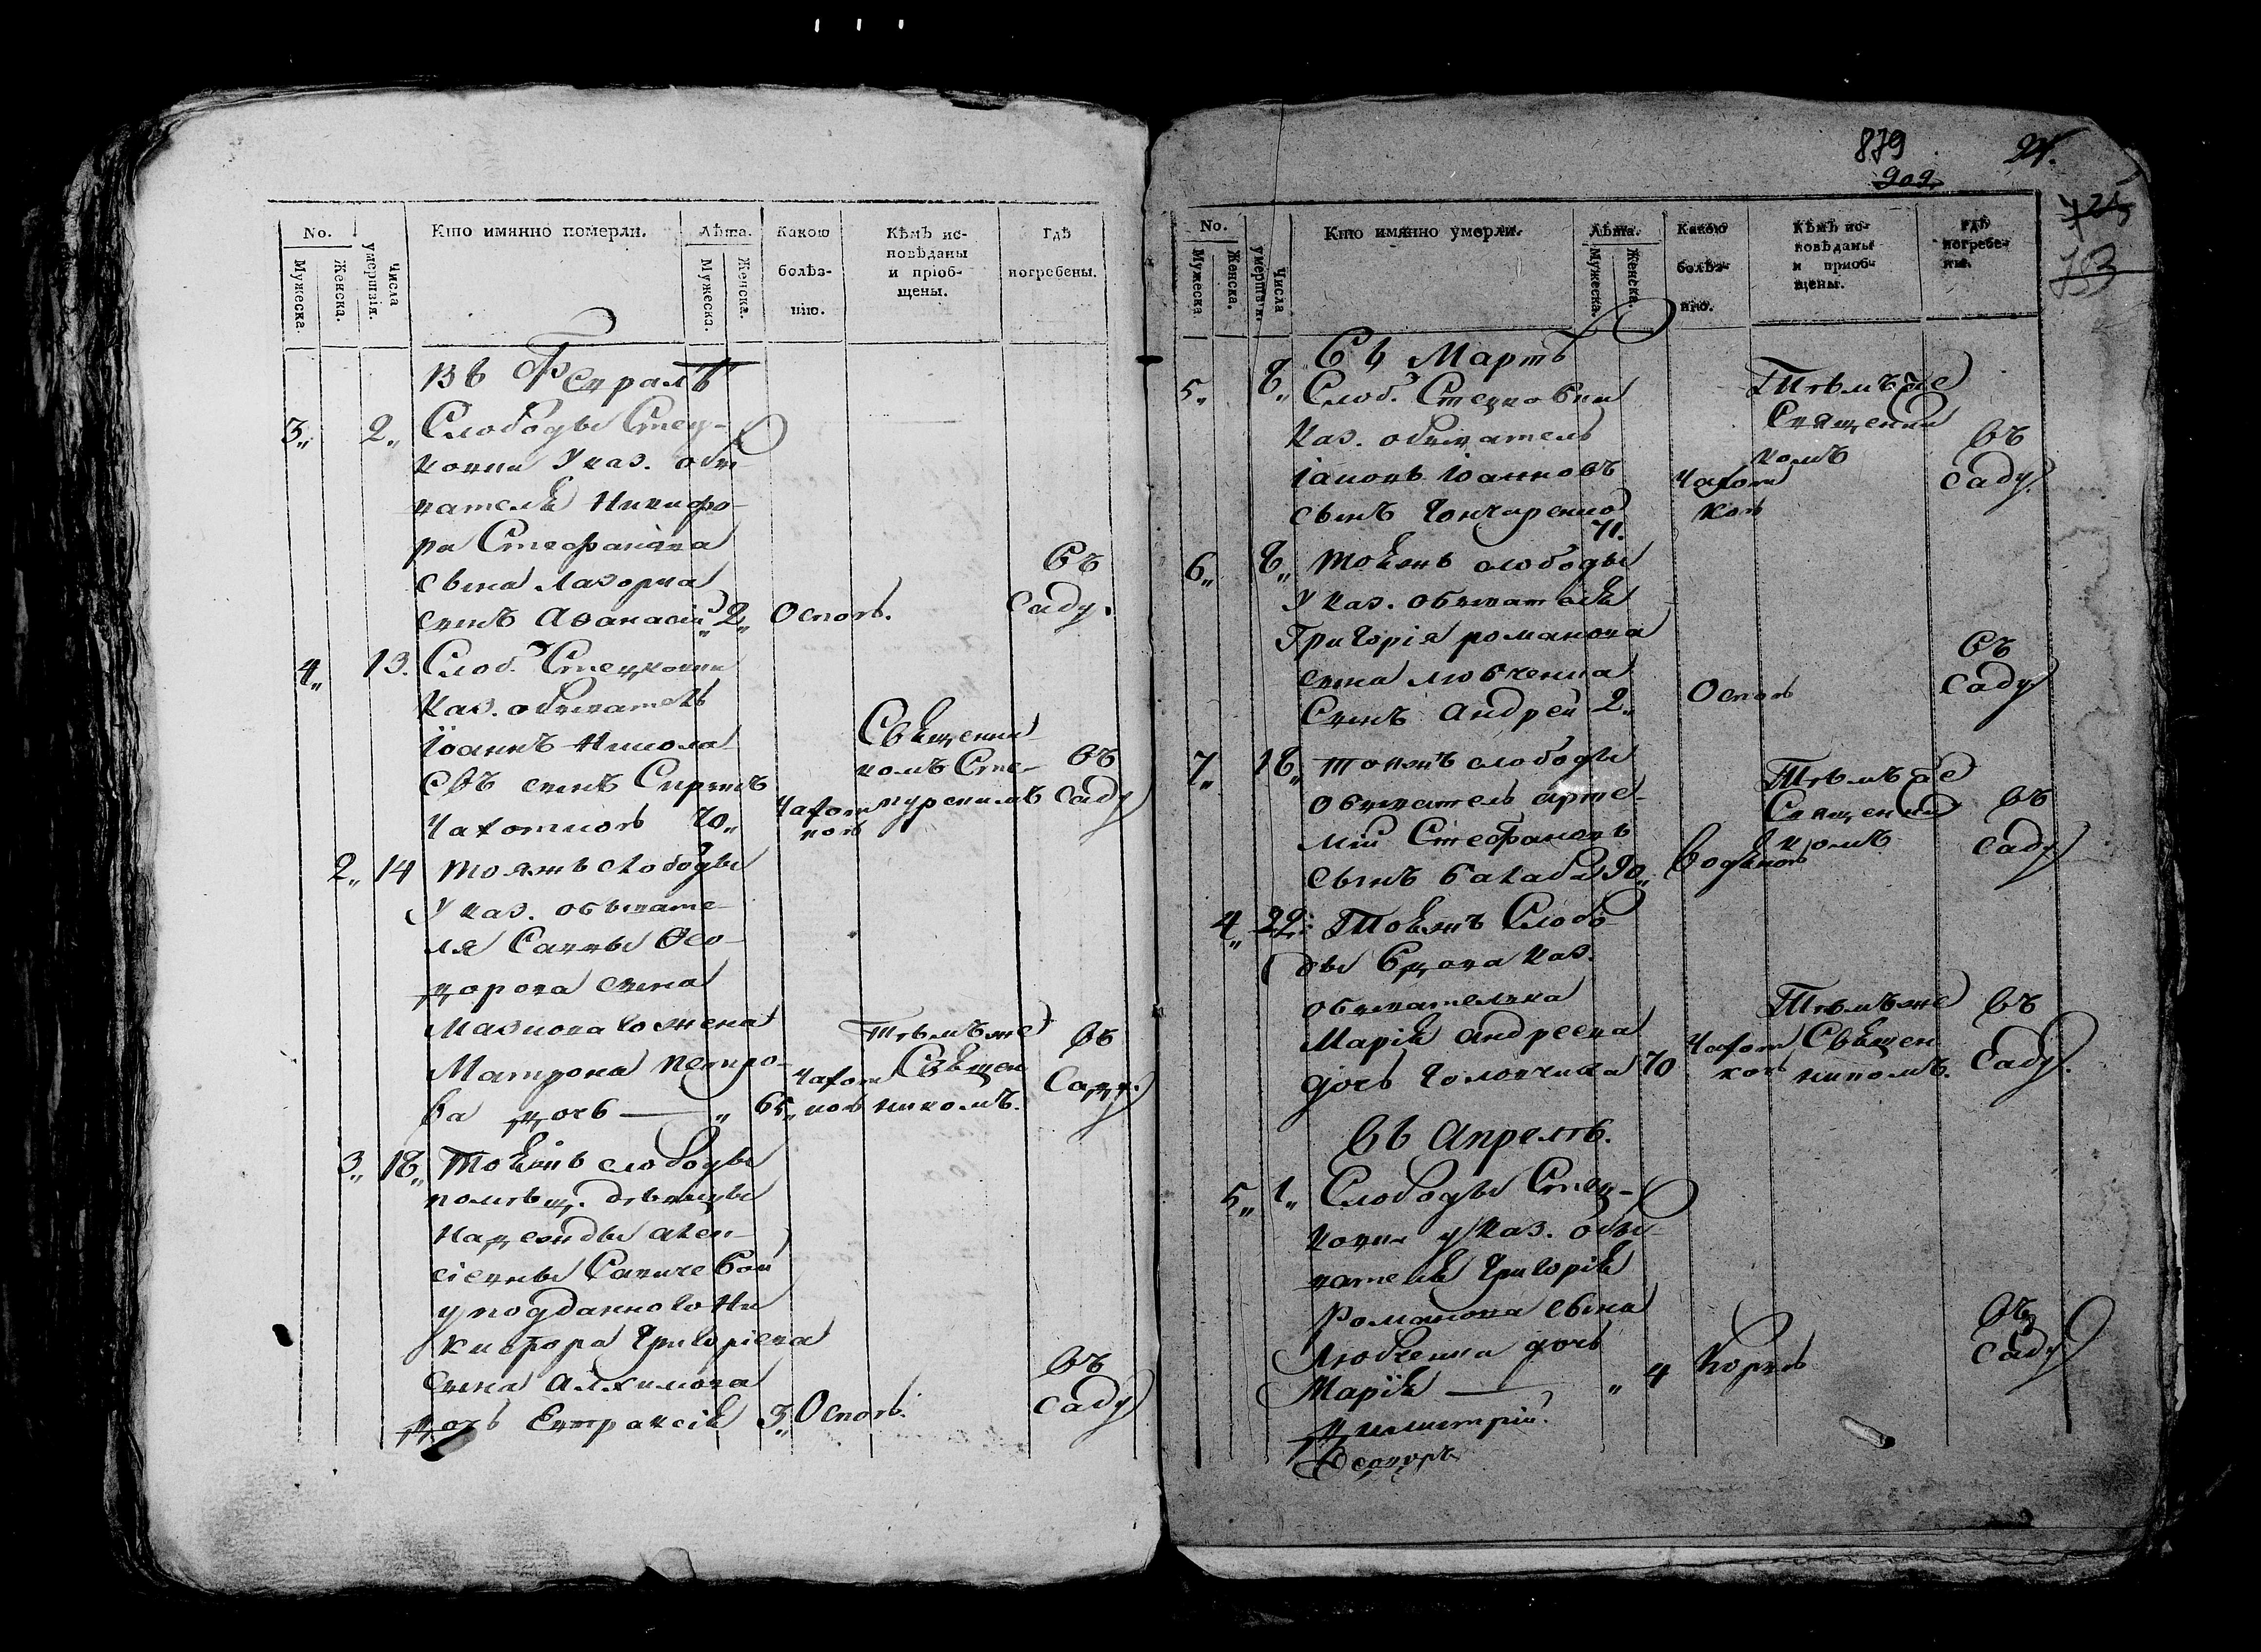 No.
Мужеска.
Женска.
Числа умершiя.
Кто имянно померли.
Лѣта.
Мужеска.
Женска.
Какою болѣз-
нiю.
Кѣмъ ис-
повѣданы
и прiоб-
щены.
Гдѣ
погребены.
Въ Февралѣ
3„ 2„ Слободы Стец-
ковки у каз. обы-
вателя Никифо-
ра Стефанова
сына Лазорка
сынъ Аѳанасiй 2„ Оспою. въ саду.
4„ 13. Слоб. Стецковки
каз. обыватель
Iоаннъ Никола
евъ сынъ
70„ Чахоткою Священни-
комъ въ саду
2„ 14 тояжъ слободы
у каз. обывате-
ля Саввы Ѳео-
дорова сына
жена
Матрона Петро-
ва дочь — „ 65„ Чахоткою Тѣмъже Священ
никомъ. въ саду.
3„ 18„ Тояжъ слободы
помѣщ. дѣвицы
Надежды Алек-
сiевны Савичевой
у подданного Ни
кифора Григорiева
сына Алхимова
дочь Евпраксiя 3„ Оспою. въ саду
879
909
No.
Мужеска.
Женска.
Числа умершiя.
Кто имянно умерли.
Лѣта.
Мужеска.
Женска.
Какою
болѣз-
нiю.
Кѣмъ ис-
повѣданы
и прiоб-
щены.
Гдѣ
погребе-
ны.
Въ Мартѣ
5„ 8„ Слоб. Стецковки
каз. обыватель
Iаковъ Iоанновъ
сынъ Гончаренко
71. Чахоткою Тѣмъже Священни
комъ въ саду.
6„ 8„ тояжъ слободы
у каз. обывателя
Григорiя Романова
сына Любченка
сынъ Андрей 2„ Оспою въ саду
7„ 18„ тояжъ слободы
обыватель Арте-
мiй Стефановъ
сынъ Балаба 90„ водяною Тѣмъже Священни
комъ въ саду
4„ 22: Тояжъ Слобо-
ды вдова каз.
обывателька
Марiя Андреева
дочь Головчика 70 Чахоткою Тѣмъже Священ
никомъ. въ саду.
Въ Апрелѣ.
5„ 1„ Слободы Стец-
ковки у каз. обы-
вателя Григорiя
Романова сына
Любченка дочь
Марiя — „ 4 Корью въ саду
Димитрiй